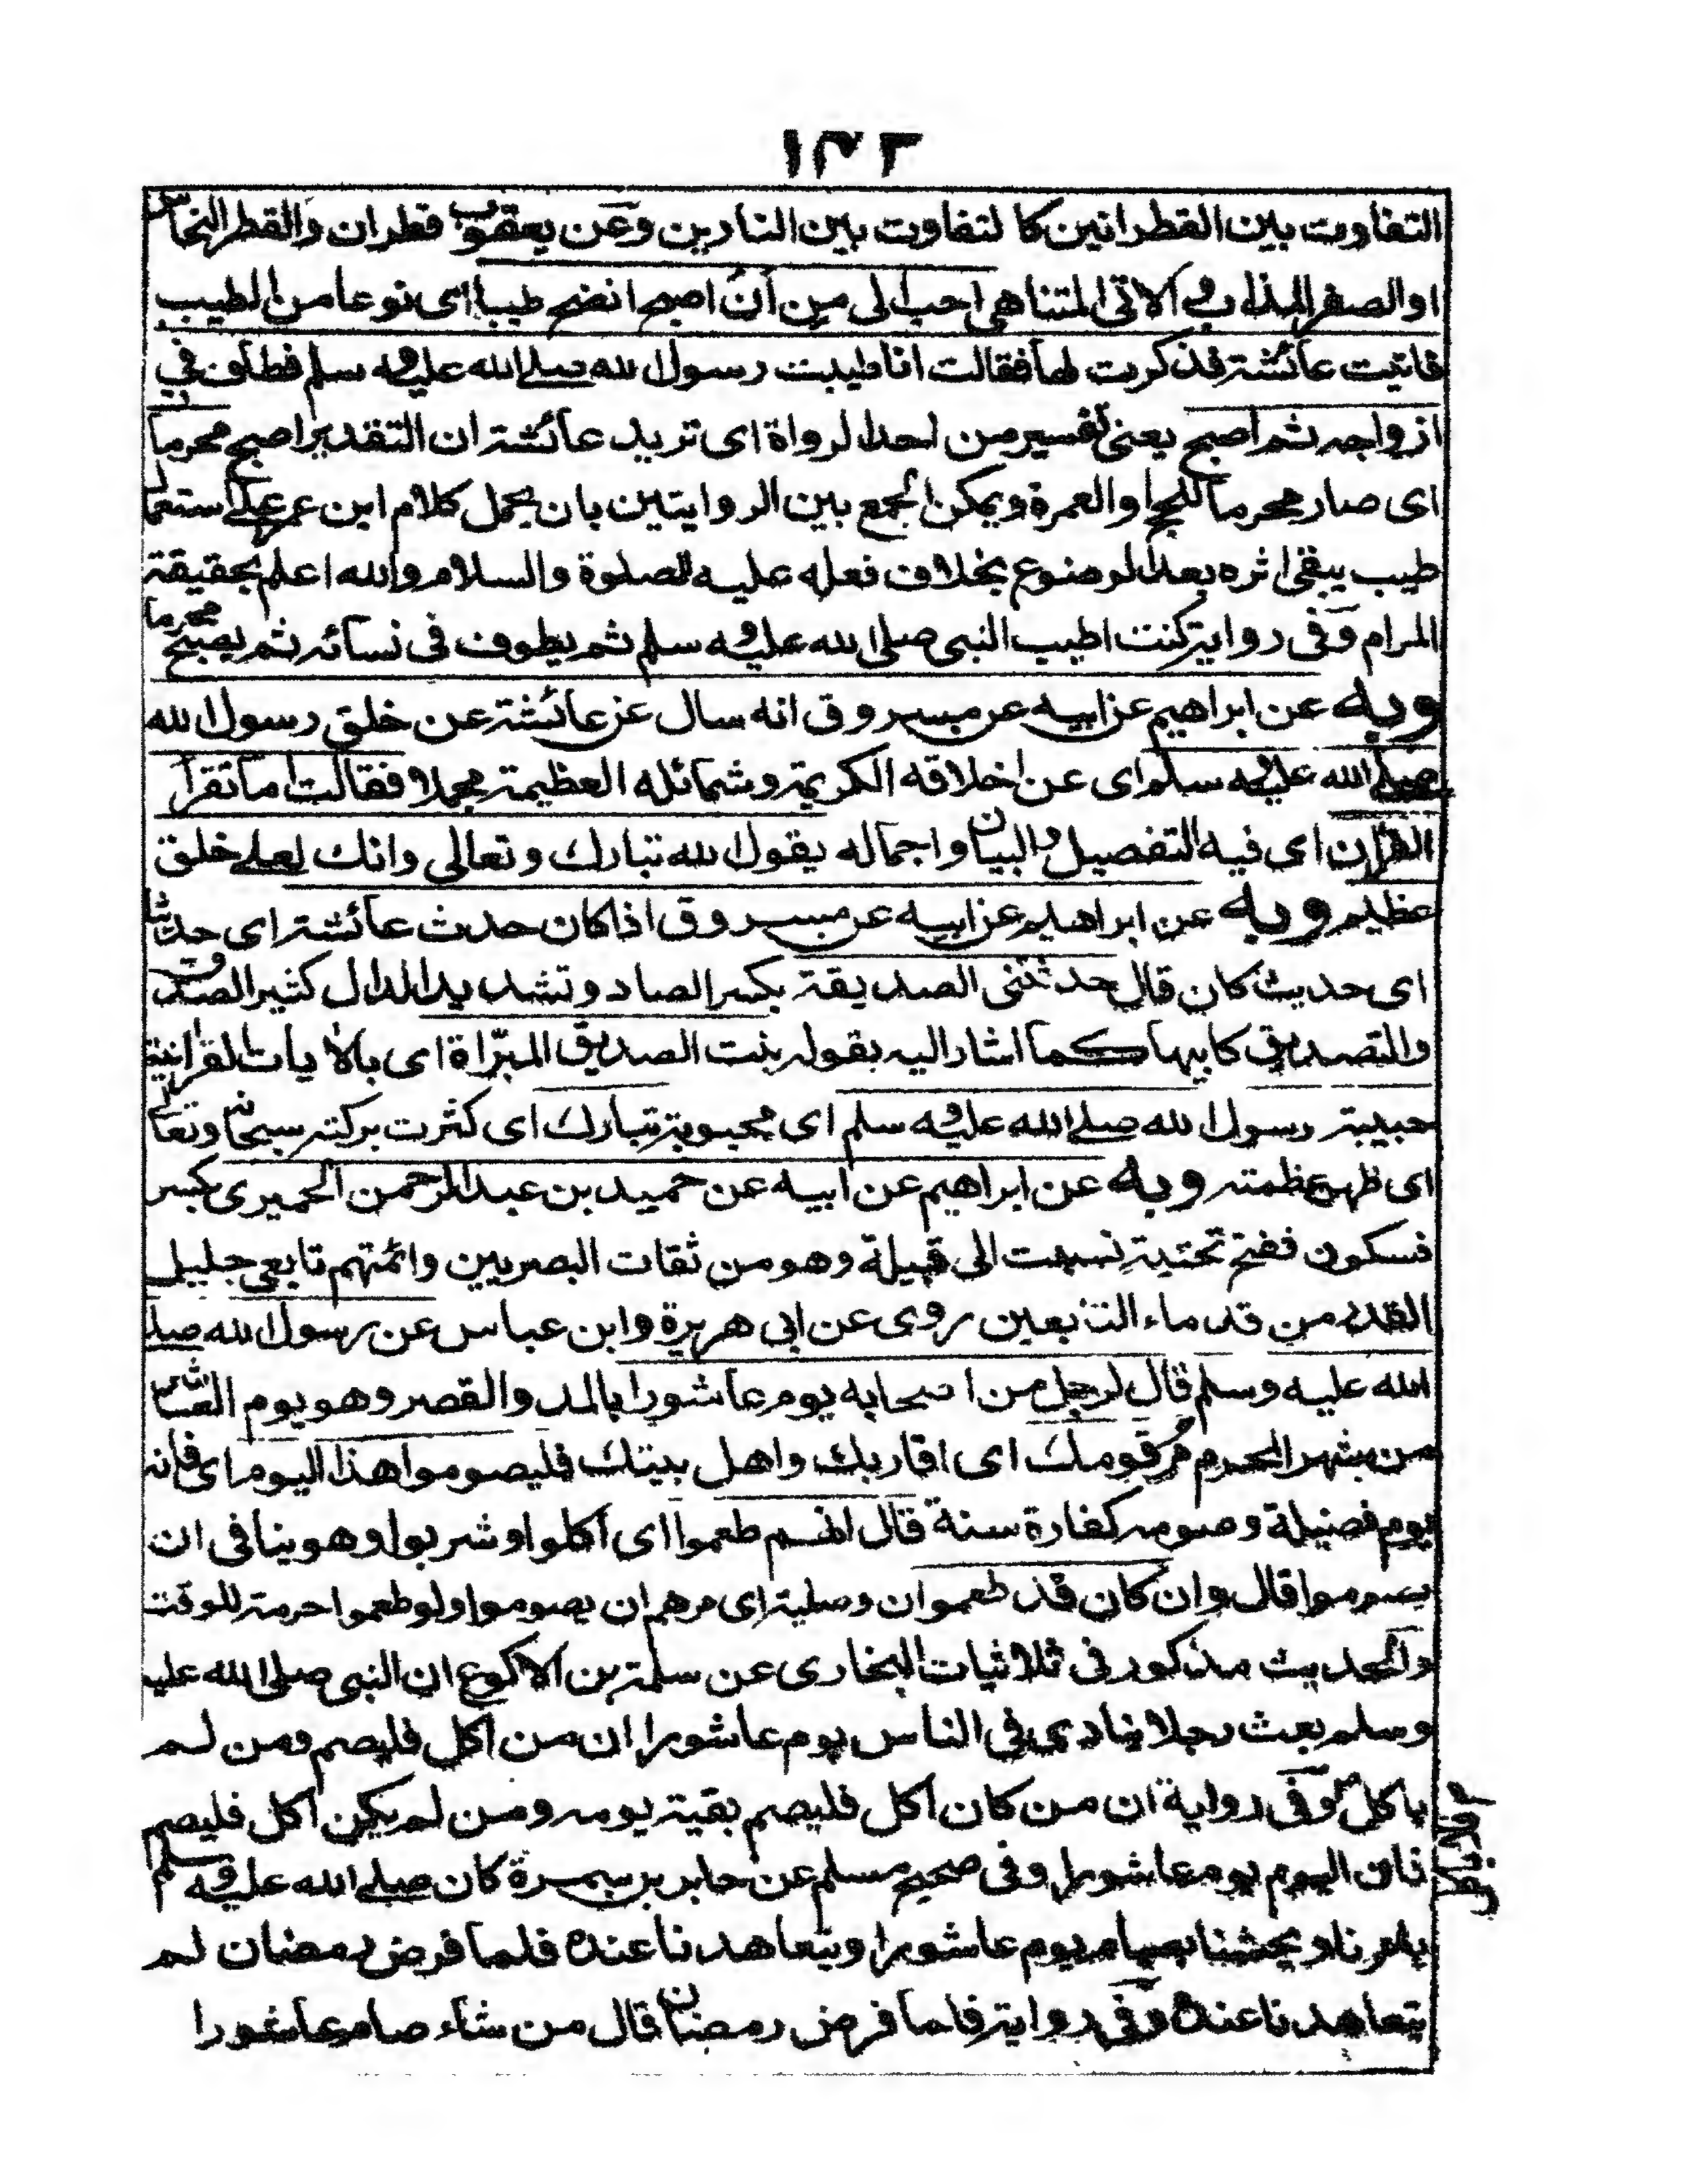 ١٣٦
التفاوت بين القطرانين كا لتفاوت بين النارين وعن يعقوب قطران والقطر النحاس
او الصفر المذاب والآتي المتناهي احب الى من أن اصبح انضح طيبا اى نوعا من الطيب
فاتيت عائشة فذكرت لها فقالت انا طيبت رسول الله صلے الله عليه وسلم فطاف في
ازواجه ثم اصبح يعنى تفسير من احد الرواة اى تريد عائشة ان التقدير اصبح محرما
اى صار محرما للحج او العمرة ويمكن الجمع بين الروايتين بان يحمل كلام ابن عمر على استعمال
طيب يبقى اثره بعد الوضوء بخلاف فعله عليه الصلوة والسلام والله اعلم بحقيقة
المرام وفى رواية كنت اطيب النبى صلى الله عليه وسلم ثم يطوف فى نسائه ثم يصبح محرما
وبه عن ابراهيم عن ابيه عن مسروق انه سال عن عائشة عن خلق رسول الله
صلے الله عليه وسلم اى عن اخلاقه الكريمة وشمائله العظيمة مجملا فقالت اما تقرا
القران اى فيه التفصيل والبيان واجماله يقول الله تبارك وتعالى وانك لعلے خلق
عظيم وبه عن ابراهيم عن ابيه عن مسروق اذا كان حدث عائشة اى حديثا
اى حديث كان قال حدثتنى الصديقة بكسر الصاد وتشديد الدال كثير الصدق
والتصديق كابيها كما اشار اليه بقوله بنت الصديق المبرّاة اى بالآيات القرانية
حبيبة رسول الله صلے الله عليه وسلم اى محبوبة تبارك اى كثرت بركته سبحانه وتعالى
اى ظهر عظمته وبه عن ابراهيم عن ابيه عن حميد بن عبد الرحمن الحميرى بكسر
فسكون ففتح تحتية نسبت الى قبيلة وهو من ثقات البصريين وائمتهم تابعي جليل
القدر من قدماء التابعين روى عن ابي هريرة وابن عباس عن رسول الله صلے
الله عليه وسلم قال لرجل من اصحابه يوم عاشورا بالمد والقصر وهو يوم العاشر
من شهر المحرم مُر قومك اى اقاربك واهل بيتك فليصوموا هذا اليوم اى فانه
يوم فضيلة وصومه كفارة سنة قال انهم طعموا اى اكلوا وشربوا وهو ينافى ان
يصوموا قال وان كان قد طعموا ان وصلية اى مرهم ان يصوموا ولو طعموا حرمة للوقت
والحديث مذكور فى ثلاثيات البخارى عن سلمة بن الاكوع ان النبى صلى الله عليه
وسلم بعث رجلا ينادى في الناس يوم عاشورا ان من اكل فليصم ومن لم
ياكل وفى رواية ان من كان اكل فليصم بقية يومه ومن لم يكن اكل فليصم
فان اليوم يوم عاشورا وفى صحيح مسلم عن جابر بن سمرة كان صلے الله عليه وسلم
يامرنا ويحثنا بصيام يوم عاشورا ويتعاهدنا عنده فلما فرض رمضان لم
يتعاهدنا عنده وفى رواية فلما فرض رمضان قال من شاء صام عاشورا